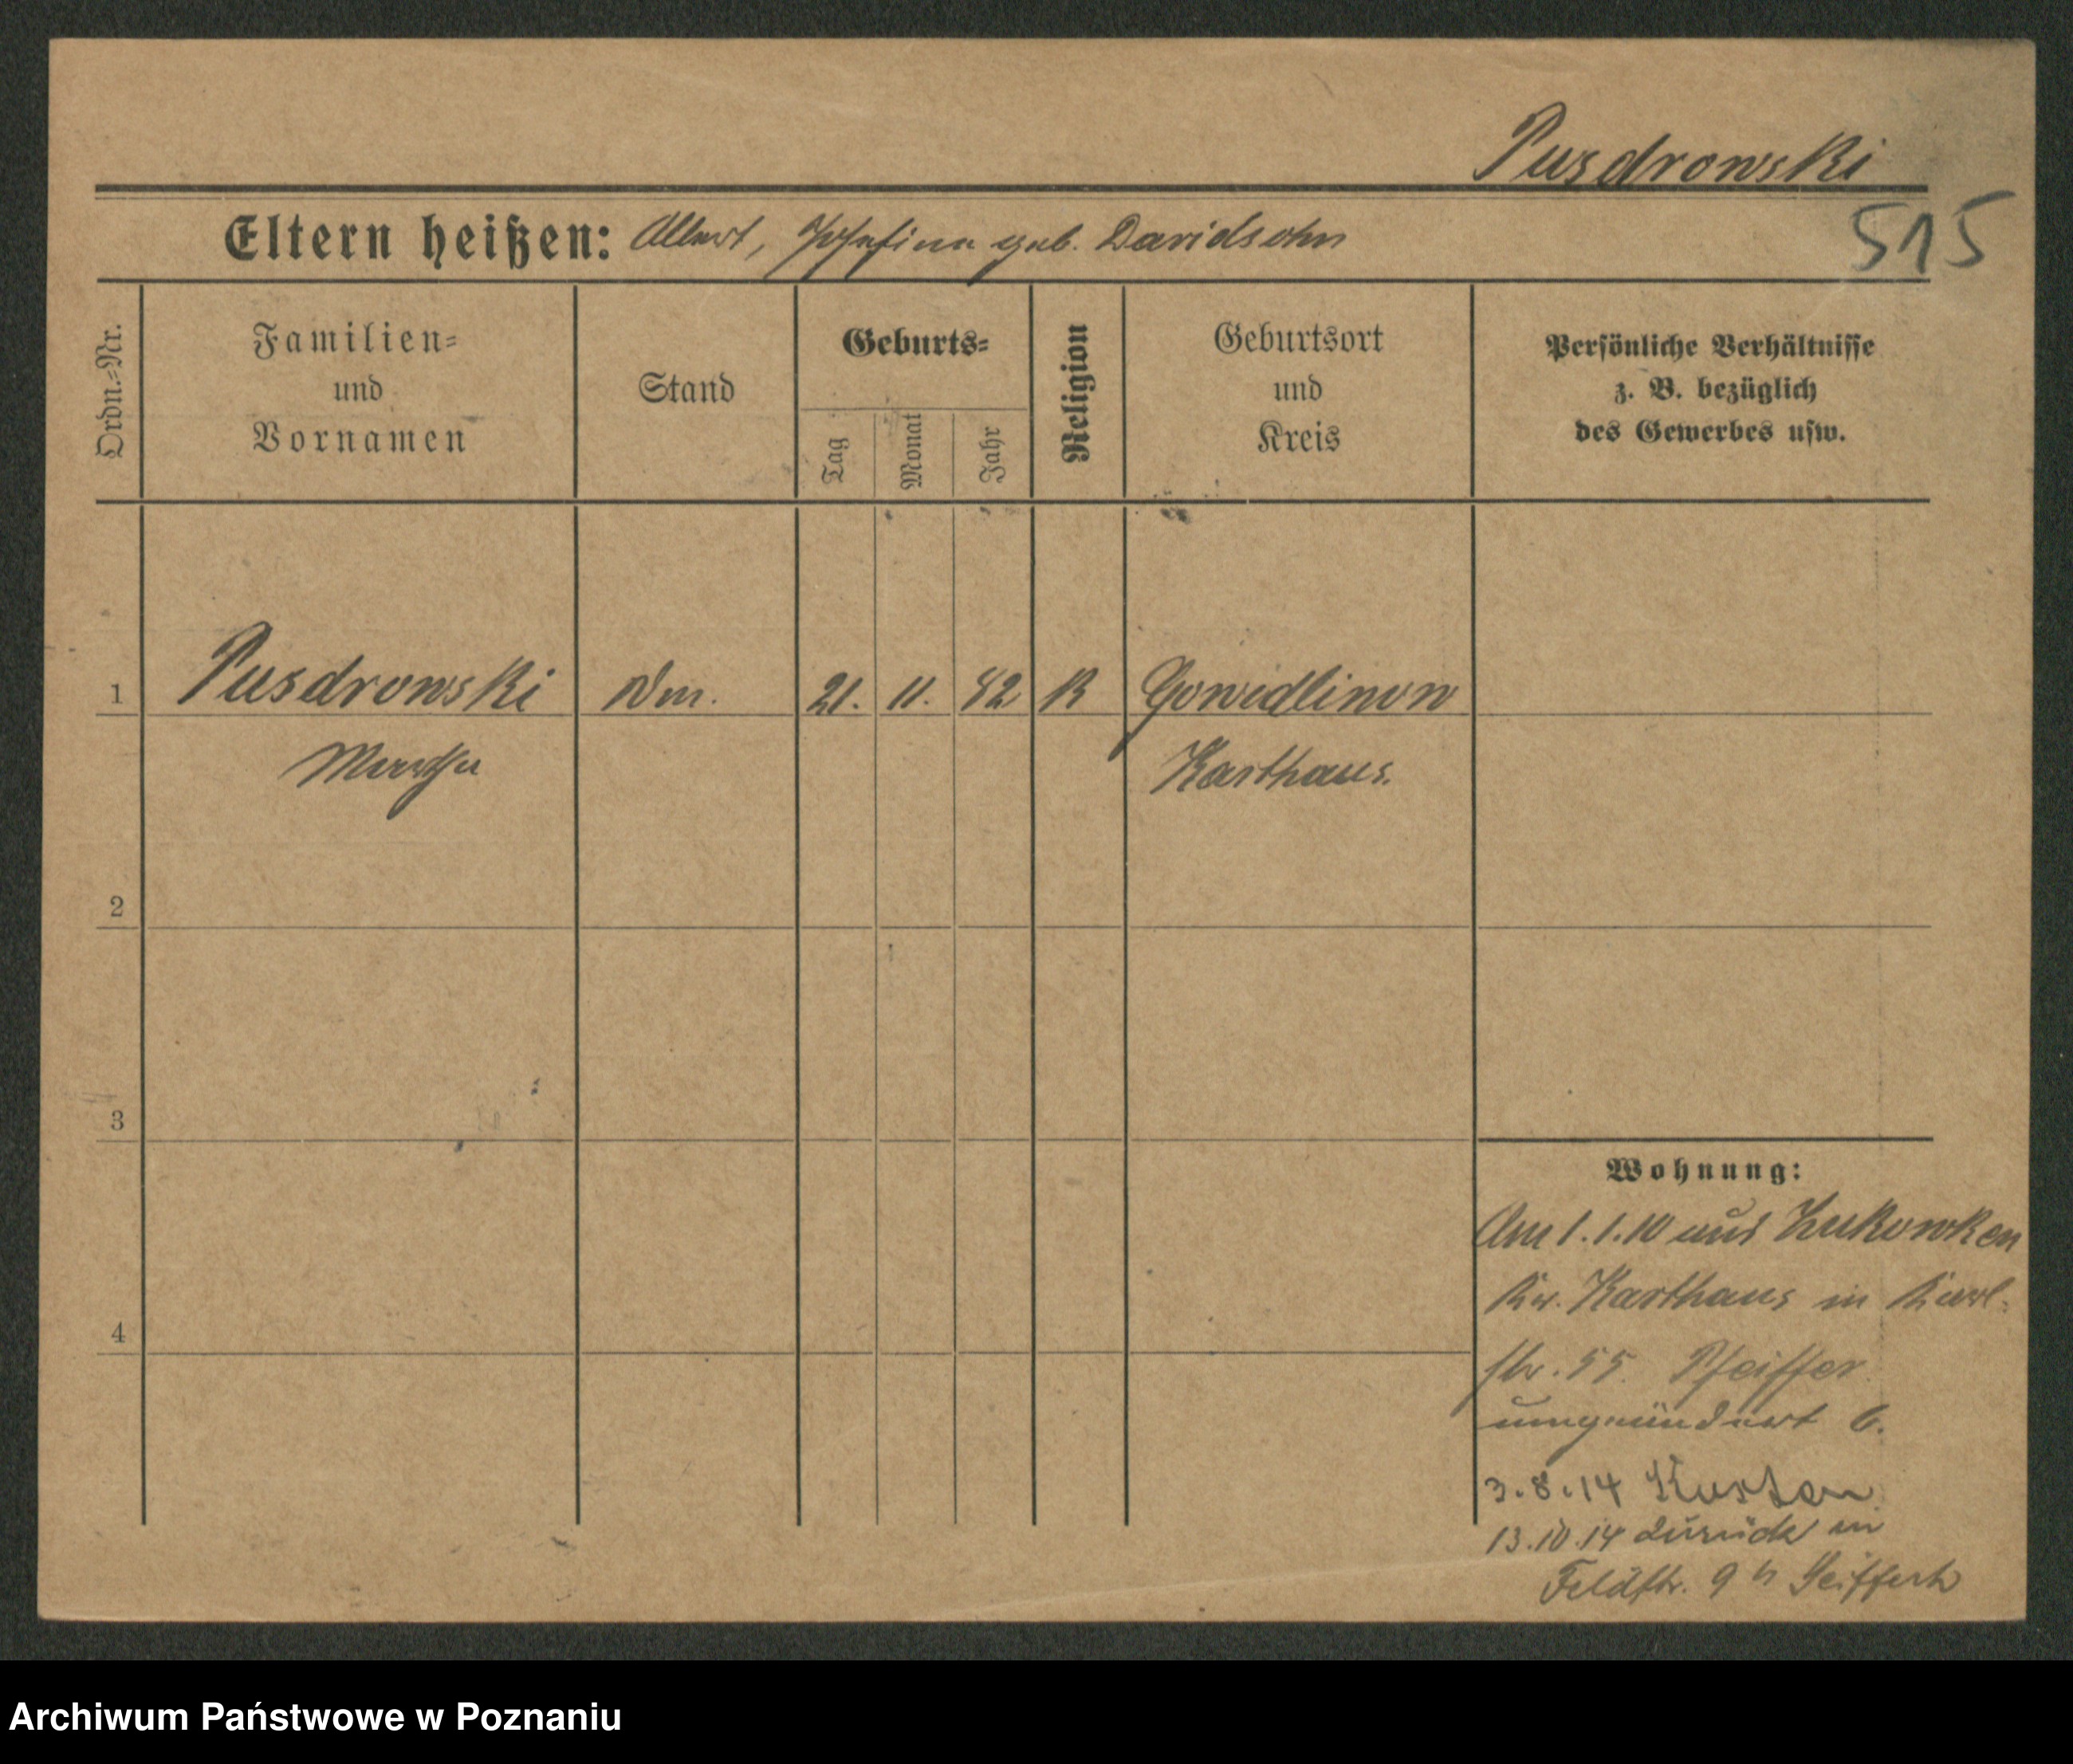 Pusdrowski
515
Eltern heißen: Albert, Josefine geb. Davidsohn
Ordn.-Nr.
Familien-
und
Vornamen
Stand
Geburts-
Tag
Monat
Jahr
Religion
Geburtsort
und
Kreis
Persönliche Verhältnisse
z. B. bezüglich
des Gewerbes usw.
1 Pusdrowski 21. 11. 82 K Gowidlinow
Martha Karthaus.
2
3
4
Wohnung:
Am 1.1.10 aus Zukowken
Kr. Karthaus in Karl-
str. 55. Pfeiffer
umgeändert
3.8.14
13.10.14 zurück in
Feldstr. 9 b Seiffert